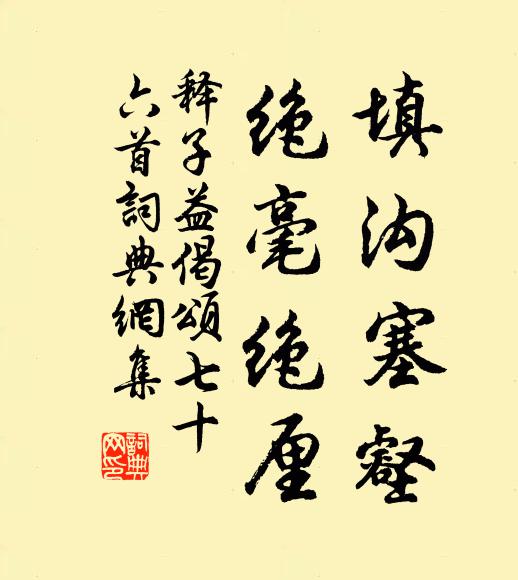 填沟塞壑
绝毫绝厘
释子益偈颂七十
六首詞典網集
詞典
网印